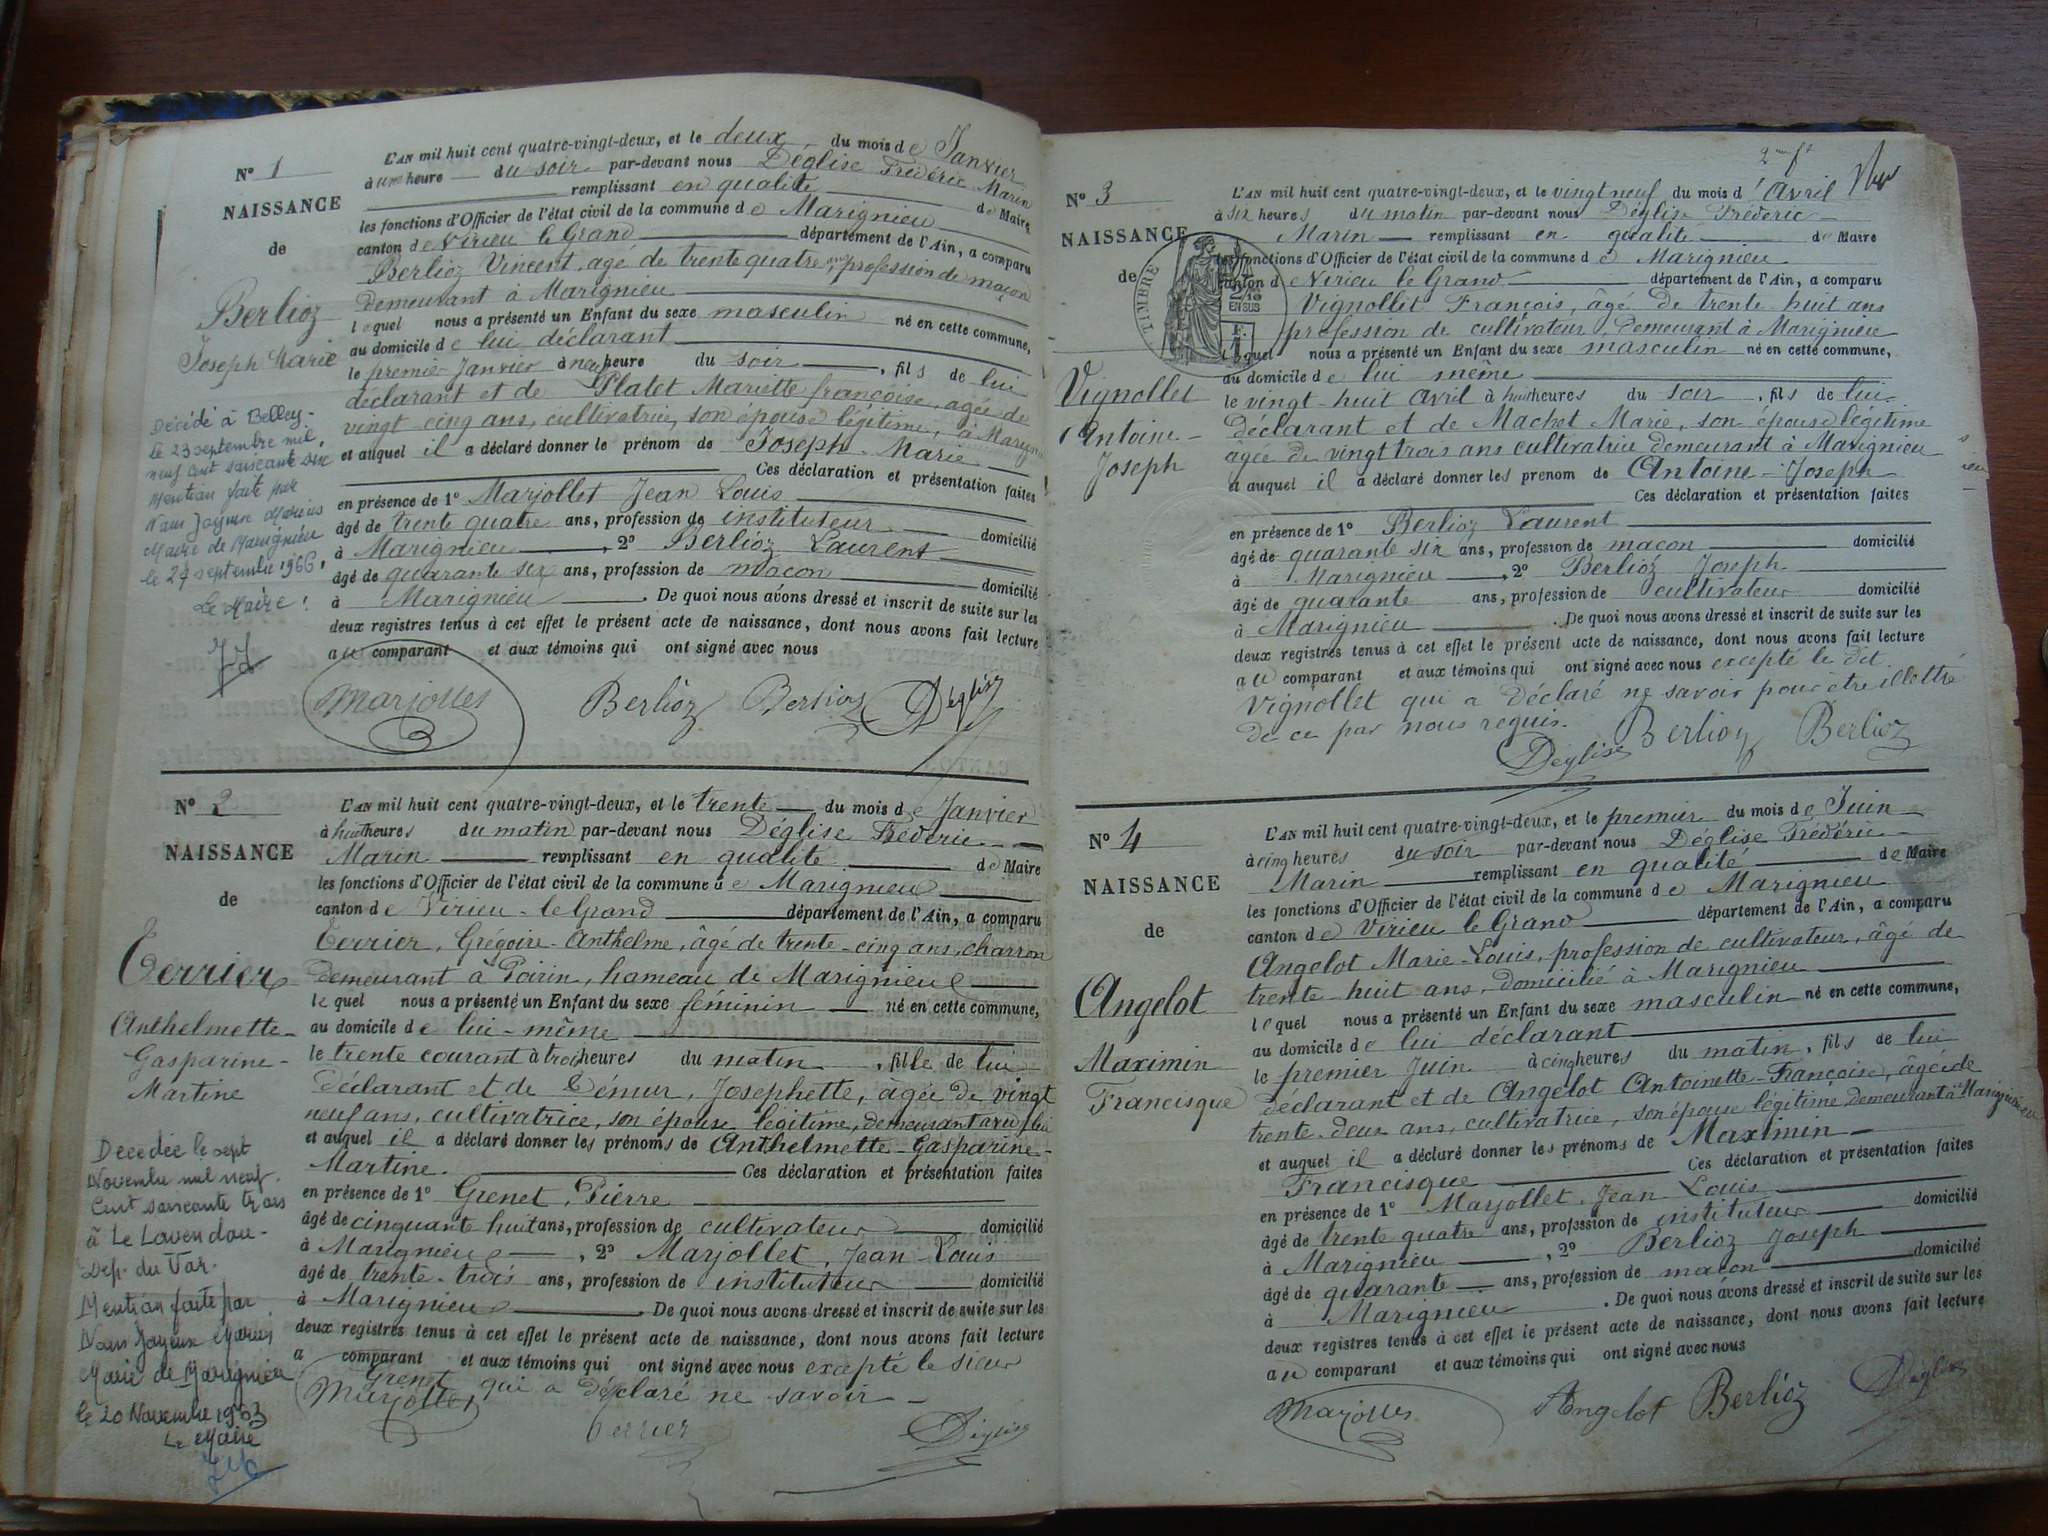 N° 1
NAISSANCE
de
Berlioz
Joseph Marie
Décédé à Belley
le 23 septembre mil
neuf cent soixante six
Mention faite par
Nous Joyeux Marius
Maire de Marignieu
le 24 septembre 1966
Le Maire
L'AN mil huit cent quatre-vingt-deux, et le deux du mois de Janvier
à une heure du soir par-devant nous Déglise Frédéric Marin
remplissant en qualité de Maire
les fonctions d'Officier de l'état civil de la commune de Marignieu
canton de Virieu le Grand département de l'Ain, a comparu
Berlioz Vincent, agé de trente quatre ans, profession de maçon
demeurant à Marignieu
lequel nous a présenté un Enfant du sexe masculin né en cette commune,
au domicile de lui déclarant
le premier Janvier à neuf heure du soir, fils de lui
déclarant et de Platet Mariette françoise, agée de
vingt cinq ans, cultivatrice, son épouse légitime, à
et auquel il a déclaré donner le prénom de Joseph Marie
Ces déclaration et présentation faites
en présence de 1° Marjollet Jean Louis
âgé de trente quatre ans, profession de instituteur domicilié
à Marignieu, 2° Berlioz Laurent
âgé de quarante six ans, profession de maçon domicilié
à Marignieu. De quoi nous avons dressé et inscrit de suite sur les
deux registres tenus à cet effet le présent acte de naissance, dont nous avons fait lecture
au comparant et aux témoins qui ont signé avec nous
Marjollet Berlioz Berlioz Déglise
N° 2
NAISSANCE
de
Terrier
Anthelmette-
Gasparine-
Martine
Décédée le sept
Novembre mil neuf
Cent soixante trois
à Le Lavendou-
Dep. du Var.
Mention faite par
Nous Joyeux Marius
Maire de Marignieu
le 20 Novembre 1963
Le Maire
L'AN mil huit cent quatre-vingt-deux, et le trente du mois de Janvier
à huit heures du matin par-devant nous Déglise Fréderic
Marin remplissant en qualité de Maire
les fonctions d'Officier de l'état civil de la commune de Marignieu
canton de Virieu-le Grand département de l'Ain, a comparu
Terrier, Grégoire-Anthelme, âgé de trente-cinq ans, charron
demeurant à Poirin, hameau de Marignieu
lequel nous a présenté un Enfant du sexe féminin né en cette commune,
au domicile de lui-même
le trente courant à trois heures du matin, fille de lui
déclarant et de Démur, Josephette, âgée de vingt
neuf ans, cultivatrice, son épouse légitime, demeurant avec lui
et auquel il a déclaré donner les prénoms de Anthelmette-Gasparine-
Martine. Ces déclaration et présentation faites
en présence de 1° Grenet, Pierre
âgé de cinquante huit ans, profession de cultivateur domicilié
à Marignieu, 2° Marjollet, Jean Louis
âgé de trente-trois ans, profession de instituteur domicilié
à Marignieu. De quoi nous avons dressé et inscrit de suite sur les
deux registres tenus à cet effet le présent acte de naissance, dont nous avons fait lecture
a comparant et aux témoins qui ont signé avec nous excepté le sieur
Grenet qui a déclaré ne savoir
Marjollet Terrier Déglise
2me ft
N° 3
NAISSANCE
de
TIMBRE
2/10
EN SUS
Vignollet
Antoine-
Joseph
L'AN mil huit cent quatre-vingt-deux, et le vingt neuf du mois d'Avril
à six heures du matin par-devant nous Déglise Fréderic
Marin remplissant en qualité de Maire
les fonctions d'Officier de l'état civil de la commune de Marignieu
canton de Virieu le Grand département de l'Ain, a comparu
Vignollet François, âgé de trente huit ans
profession de cultivateur, demeurant à Marignieu
lequel nous a présenté un Enfant du sexe masculin né en cette commune,
au domicile de lui même
le vingt-huit Avril à huit heures du soir, fils de lui
déclarant et de Machet Marie, son épouse légitime
âgée de vingt trois ans cultivatrice demeurant à Marignieu
et auquel il a déclaré donner les prenom de Antoine-Joseph
Ces déclaration et présentation faites
en présence de 1° Berlioz Laurent
âgé de quarante six ans, profession de maçon domicilié
à Marignieu, 2° Berlioz Joseph
âgé de quarante ans, profession de cultivateur domicilié
à Marignieu. De quoi nous avons dressé et inscrit de suite sur les
deux registres tenus à cet effet le présent acte de naissance, dont nous avons fait lecture
au comparant et aux témoins qui ont signé avec nous excepté le dit
Vignollet qui a déclaré ne savoir pour être illettré
de ce par nous requis.
Déglise Berlioz Berlioz
N° 4
NAISSANCE
de
Angelot
Maximin
Francisque
L'AN mil huit cent quatre-vingt-deux, et le premier du mois de Juin
à cinq heures du soir par-devant nous Déglise Frédéric
Marin remplissant en qualité de Maire
les fonctions d'Officier de l'état civil de la commune de Marignieu
canton de Virieu le Grand département de l'Ain, a comparu
Angelot Marie-Louis, profession de cultivateur, âgé de
trente-huit ans, domicilié à Marignieu
lequel nous a présenté un Enfant du sexe masculin né en cette commune,
au domicile de lui déclarant
le premier Juin à cinq heures du matin, fils de lui
déclarant et de Angelot Antoinette-Françoise, âgée de
trente-deux ans, cultivatrice, son épouse légitime demeurant à Marignieu
et auquel il a déclaré donner les prénoms de Maximin
Francisque Ces déclaration et présentation faites
en présence de 1° Marjollet, Jean Louis
âgé de trente quatre ans, profession de instituteur domicilié
à Marignieu, 2° Berlioz Joseph
âgé de quarante ans, profession de maçon domicilié
à Marignieu. De quoi nous avons dressé et inscrit de suite sur les
deux registres tenus à cet effet le présent acte de naissance, dont nous avons fait lecture
au comparant et aux témoins qui ont signé avec nous
Marjollet Angelot Berlioz Déglise